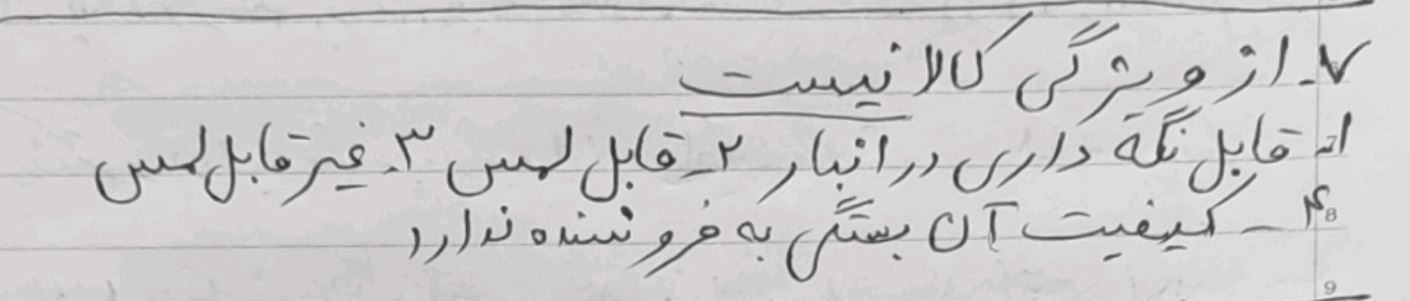 ۷_ از ویژگی کالا نیست
۱_ قابل نگه داری در انبار ۲_ قابل لمس ۳_ غیر قابل لمس
۴_ کیفیت آن بستگی به فروشنده ندارد
8
9